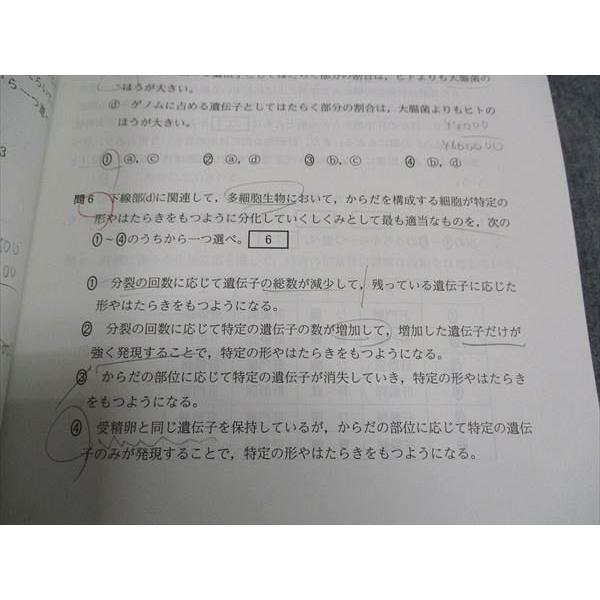 ほうが大きい。
ⓓ ゲノムに占める遺伝子としてはたらく部分の割合は，大腸菌よりもヒトの
ほうが大きい。
① ⓐ, ⓒ ② ⓐ, ⓓ ③ ⓑ, ⓒ ④ ⓑ, ⓓ
問6 下線部(d)に関連して，多細胞生物において，からだを構成する細胞が特定の
形やはたらきをもつように分化していくしくみとして最も適当なものを，次の
①～④のうちから一つ選べ。 6
① 分裂の回数に応じて遺伝子の総数が減少して，残っている遺伝子に応じた
形やはたらきをもつようになる。
② 分裂の回数に応じて特定の遺伝子の数が増加して，増加した遺伝子だけが
強く発現することで，特定の形やはたらきをもつようになる。
③ からだの部位に応じて特定の遺伝子が消失していき，特定の形やはたらき
をもつようになる。
④ 受精卵と同じ遺伝子を保持しているが，からだの部位に応じて特定の遺伝
子のみが発現することで，特定の形やはたらきをもつようになる。